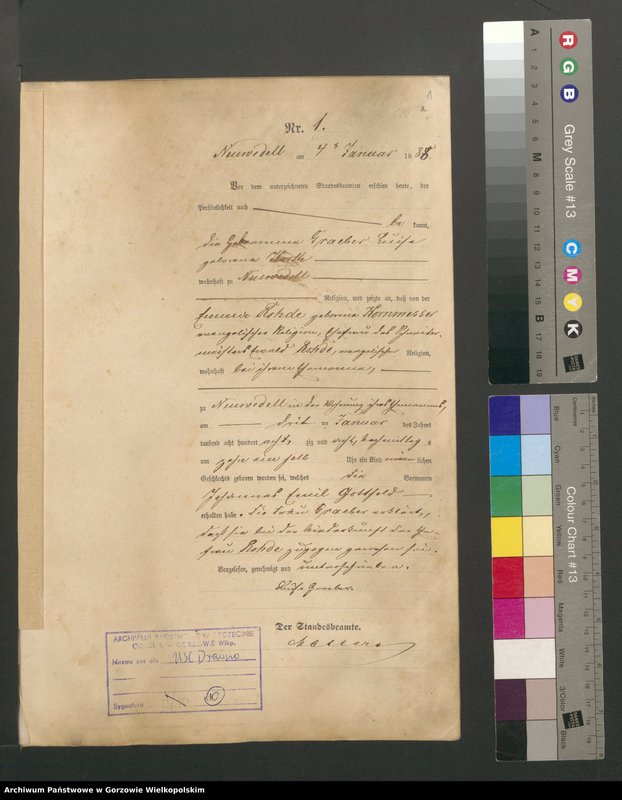 1
A.
Nr. 1.
Neuwedell am 4 Januar 1888
Vor dem unterzeichneten Standesbeamten erschien heute, der
Persönlichkeit nach
be kannt,
die Hebamme Graeber Luise
geborene
wohnhaft zu Neuwedell
Religion, und zeigte an, daß von der
Emma Rohde geborene Kommesser
evangelischer Religion, Ehefrau des Schneider-
meisters Ewald Rohde, evangelischer Religion,
wohnhaft bei ihrem Ehemanne,
zu Neuwedell in der Wohnung ihres Ehemannes,
am drit ten Januar des Jahres
tausend acht hundert acht zig und acht, Nachmittag s
um zehn ein halb Uhr ein Kind männ lichen
Geschlechts geboren worden sei, welches die Vornamen
Johannes Emil Gotthold
erhalten habe. Die Frau Graeber erklärt,
daß sie bei der Niederkunft der Ehe-
frau Rohde zugegen gewesen sei.
Vorgelesen, genehmigt und unterschrieben.
Luise Graeber.
Der Standesbeamte.
ARCHIWUM PAŃSTWOWE W SZCZECINIE
ODDZIAŁ W GORZOWIE Wlkp.
Nazwa zespołu USC Drawno
Sygnatura 10
Archiwum Państwowe w Gorzowie Wielkopolskim
A 1 2 3 4 5 6 M 7 8 9 10 11 12 13 14 15 B 17 18 19
R G B
Grey Scale #13
C M Y K
Colour Chart #13
Blue
Cyan
Green
Yellow
Red
Magenta
White
3/Color
Black
Centimetres
Inches